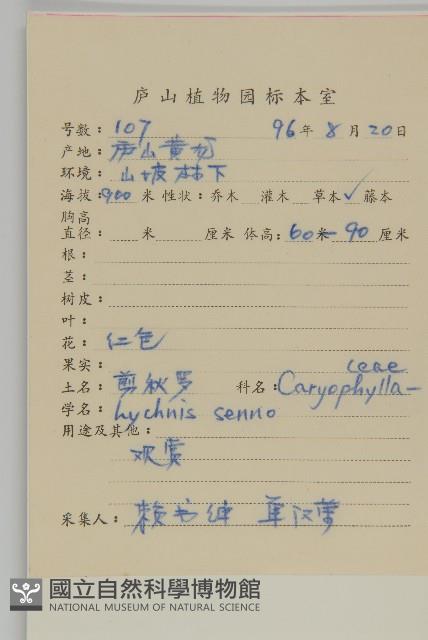 庐山植物园标本室
号数：107 96年8月20日
产地：庐山黄龙
环境：山坡林下
海拔：900米 性状：乔木 灌木 草本✓ 藤本
胸高
直径： 米 厘米 体高：60米-90厘米
根：
茎：
树皮：
叶：
花：红色
果实：
土名：剪秋罗 科名：Caryophylla-
ceae
学名：Lychnis senno
用途及其他：
观赏
采集人：赖书绅
國立自然科學博物館
NATIONAL MUSEUM OF NATURAL SCIENCE